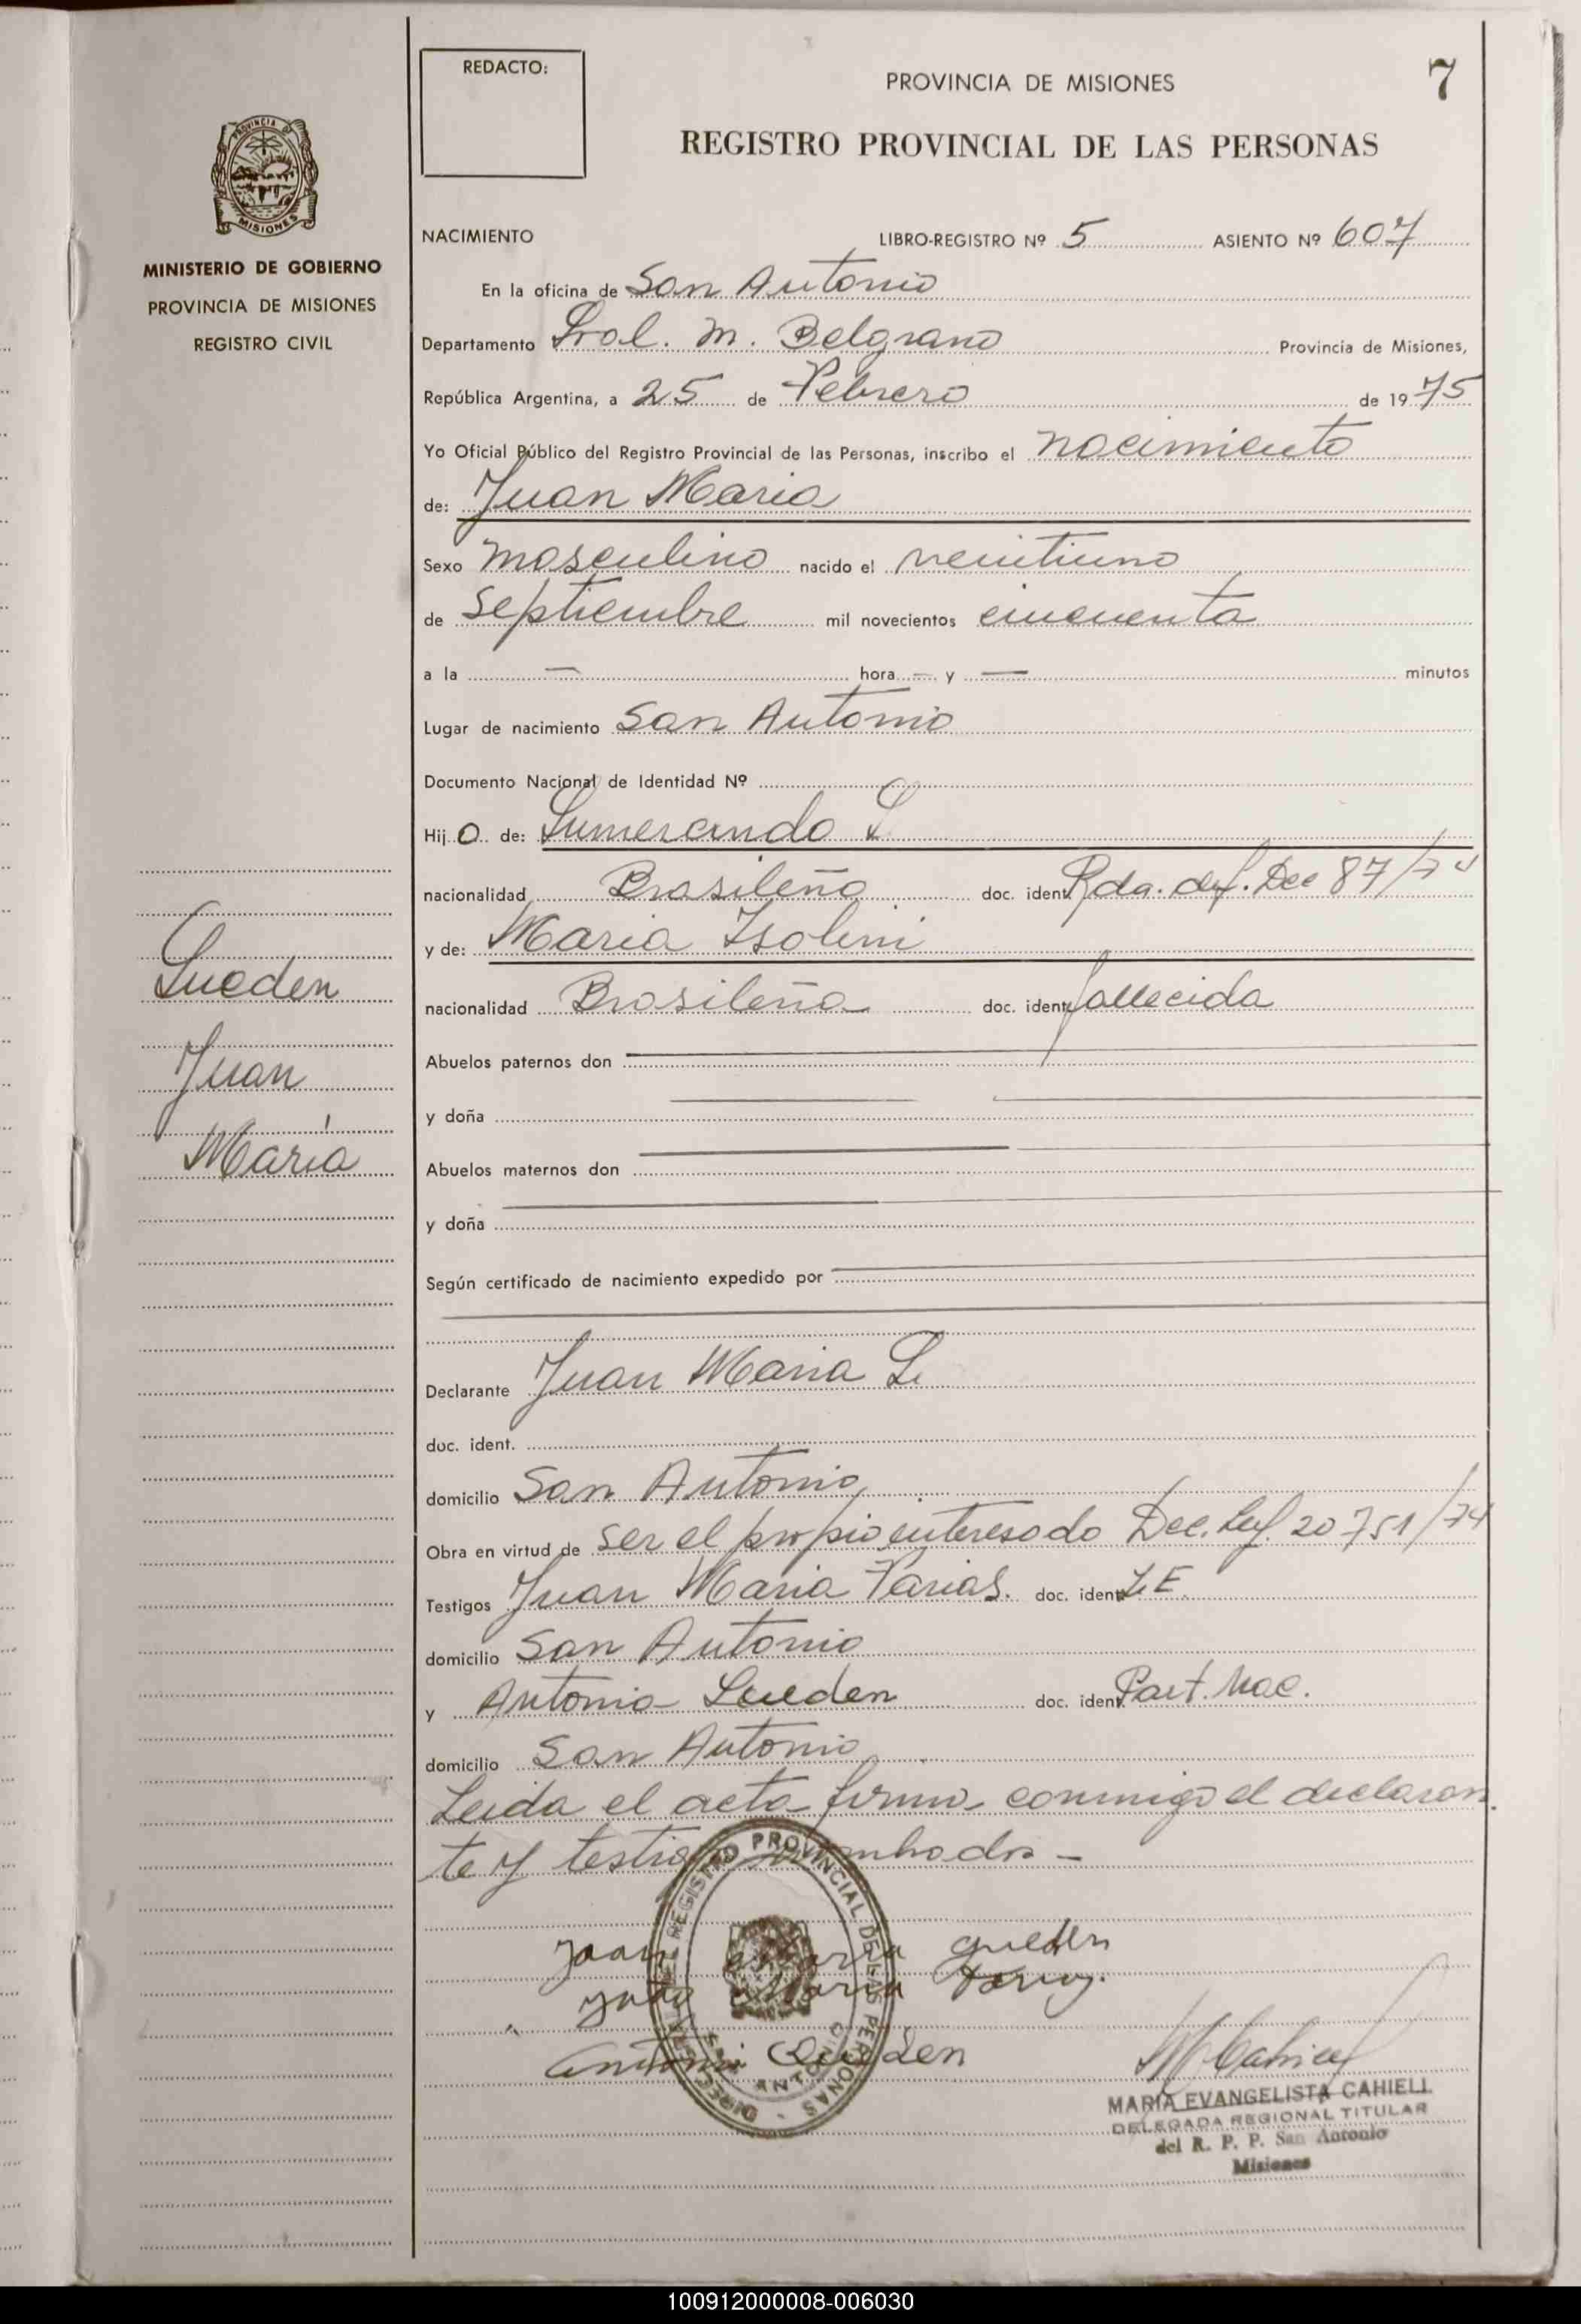 REDACTO:
PROVINCIA DE MISIONES
7
REGISTRO PROVINCIAL DE LAS PERSONAS
PROVINCIA DE
MISIONES
MINISTERIO DE GOBIERNO
PROVINCIA DE MISIONES
REGISTRO CIVIL
NACIMIENTO LIBRO-REGISTRO Nº 5 ASIENTO Nº 607
En la oficina de San Antonio
Departamento Gral. M. Belgrano Provincia de Misiones,
República Argentina, a 25 de Febrero de 1975
Yo Oficial Público del Registro Provincial de las Personas, inscribo el nacimiento
de: Juan Maria
Sexo masculino nacido el veintiuno
de septiembre mil novecientos cincuenta
a la — hora — y — minutos
Lugar de nacimiento San Antonio
Documento Nacional de Identidad Nº
Hijo de: Lumercindo L
nacionalidad Brasileña doc. ident. Rda. def. Dec 87/74
y de: Maria Isolini
nacionalidad Brasileña doc. ident. fallecida
Lueden
Juan
María
Abuelos paternos don
y doña
Abuelos maternos don
y doña
Según certificado de nacimiento expedido por
Declarante Juan Maria L.
doc. ident.
domicilio San Antonio
Obra en virtud de ser el propio interesado Dec. Ley. 20751/74
Testigos Juan Maria Farias. doc. ident. L E.
domicilio San Antonio
y Antonio Lueden doc. ident. Part. Nac.
domicilio San Antonio
Leida el acta firma conmigo el declaran
te y testigos
REGISTRO PROVINCIAL DE LAS PERSONAS
SAN ANTONIO
Juan Maria Gueden
Maria
Antonio
MARIA EVANGELISTA CAHIELL
DELEGADA REGIONAL TITULAR
del R. P. P. San Antonio
Misiones
100912000008-006030